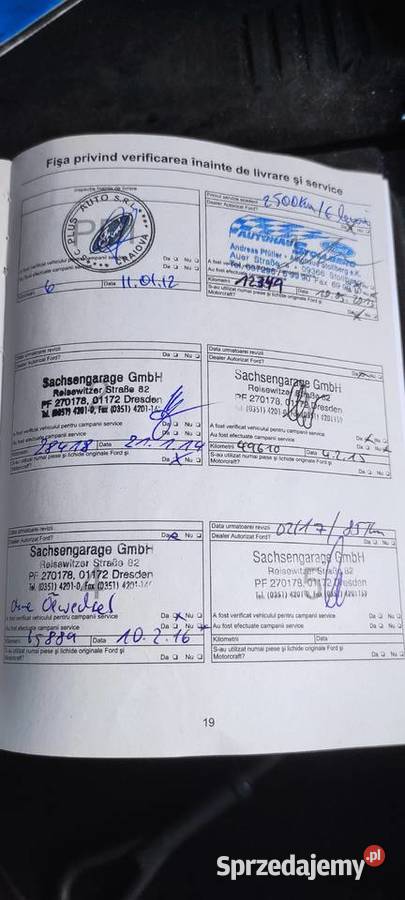 Fişa privind verificarea înainte de livrare şi service
Inspecţie înainte de livrare
PLUS AUTO S.R.L.
CRAIOVA
A fost verificat vehiculul pentru campanii service
Da Nu
Au fost efectuate campanii service
Da Nu
Kilometri 6 Data 11.01.12
2500Km/6
Dealer Autorizat Ford?
AUTOHAUS
Andreas Pfüller
09366 Stollberg
Auer Straße
Da Nu
Kilometri 12349 Data
S-au utilizat numai piese şi lichide originale Ford şi
Motorcraft? Da Nu
Data urmatoarei revizii
Dealer Autorizat Ford? Da Nu
Sachsengarage GmbH
Reisewitzer Straße 82
PF 270178, 01172 Dresden
Tel. (0351) 4201-0, Fax (0351) 4201-
A fost verificat vehiculul pentru campanii service
Da Nu
Au fost efectuate campanii service
Da Nu
Kilometri 28418 Data 21.1.14
S-au utilizat numai piese şi lichide originale Ford şi
Motorcraft? Da Nu
Data urmatoarei revizii
Dealer Autorizat Ford? Da Nu
Sachsengarage GmbH
Reisewitzer Straße 82
PF 270178, 01172 Dresden
Tel. (0351) 4201-0
A fost verificat vehiculul pentru campanii service
Da Nu
Au fost efectuate campanii service
Da Nu
Kilometri 49610 Data 4.2.15
S-au utilizat numai piese şi lichide originale Ford şi
Motorcraft? Da Nu
Data urmatoarei revizii
Dealer Autorizat Ford? Da Nu
Sachsengarage GmbH
Reisewitzer Straße 82
PF 270178, 01172 Dresden
Tel. (0351) 4201-0, Fax (0351) 4201-
Ohne Ölwechsel
A fost verificat vehiculul pentru campanii service
Da Nu
Au fost efectuate campanii service
Da Nu
Kilometri 65889 Data 10.2.16
S-au utilizat numai piese şi lichide originale Ford şi
Motorcraft? Da Nu
Data urmatoarei revizii 02/17/85Tkm
Dealer Autorizat Ford? Da Nu
Sachsengarage GmbH
Reisewitzer Straße 82
PF 270178, 01172 Dresden
Tel. (0351) 4201-0, Fax (0351) 4201153
A fost verificat vehiculul pentru campanii service
Da Nu
Au fost efectuate campanii service
Da Nu
Kilometri Data
S-au utilizat numai piese şi lichide originale Ford şi
Motorcraft? Da Nu
19
Sprzedajemy.pl